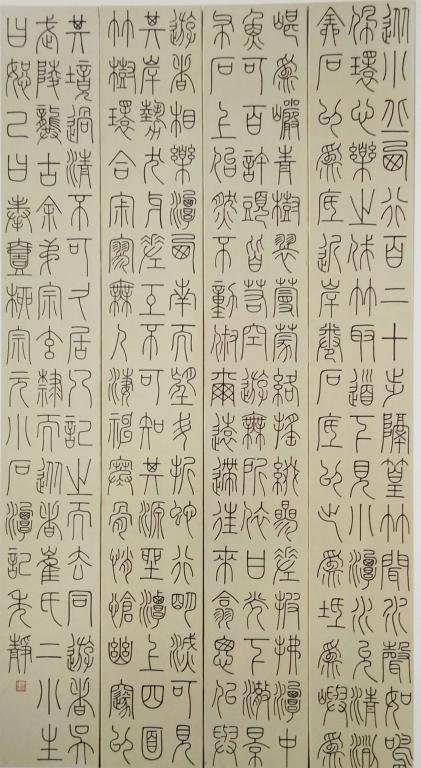 從小丘西行百二十步隔篁竹聞水聲如鳴
佩環心樂之伐竹取道下見小潭水尤清冽
全石以為底近岸卷石底以出為坻為嶼為
嵁為巖青樹翠蔓蒙絡搖綴參差披拂潭中
魚可百許頭皆若空遊無所依日光下澈影
布石上佁然不動俶爾遠逝往來翕忽似與
遊者相樂潭西南而望斗折蛇行明滅可見
其岸勢犬牙差互不可知其源坐潭上四面
竹樹環合寂寥無人淒神寒骨悄愴幽邃以
其境過清不可久居乃記之而去同遊者吳
武陵龔古余弟宗玄隸而從者崔氏二小生
曰恕己曰奉壹柳宗元小石潭記靜